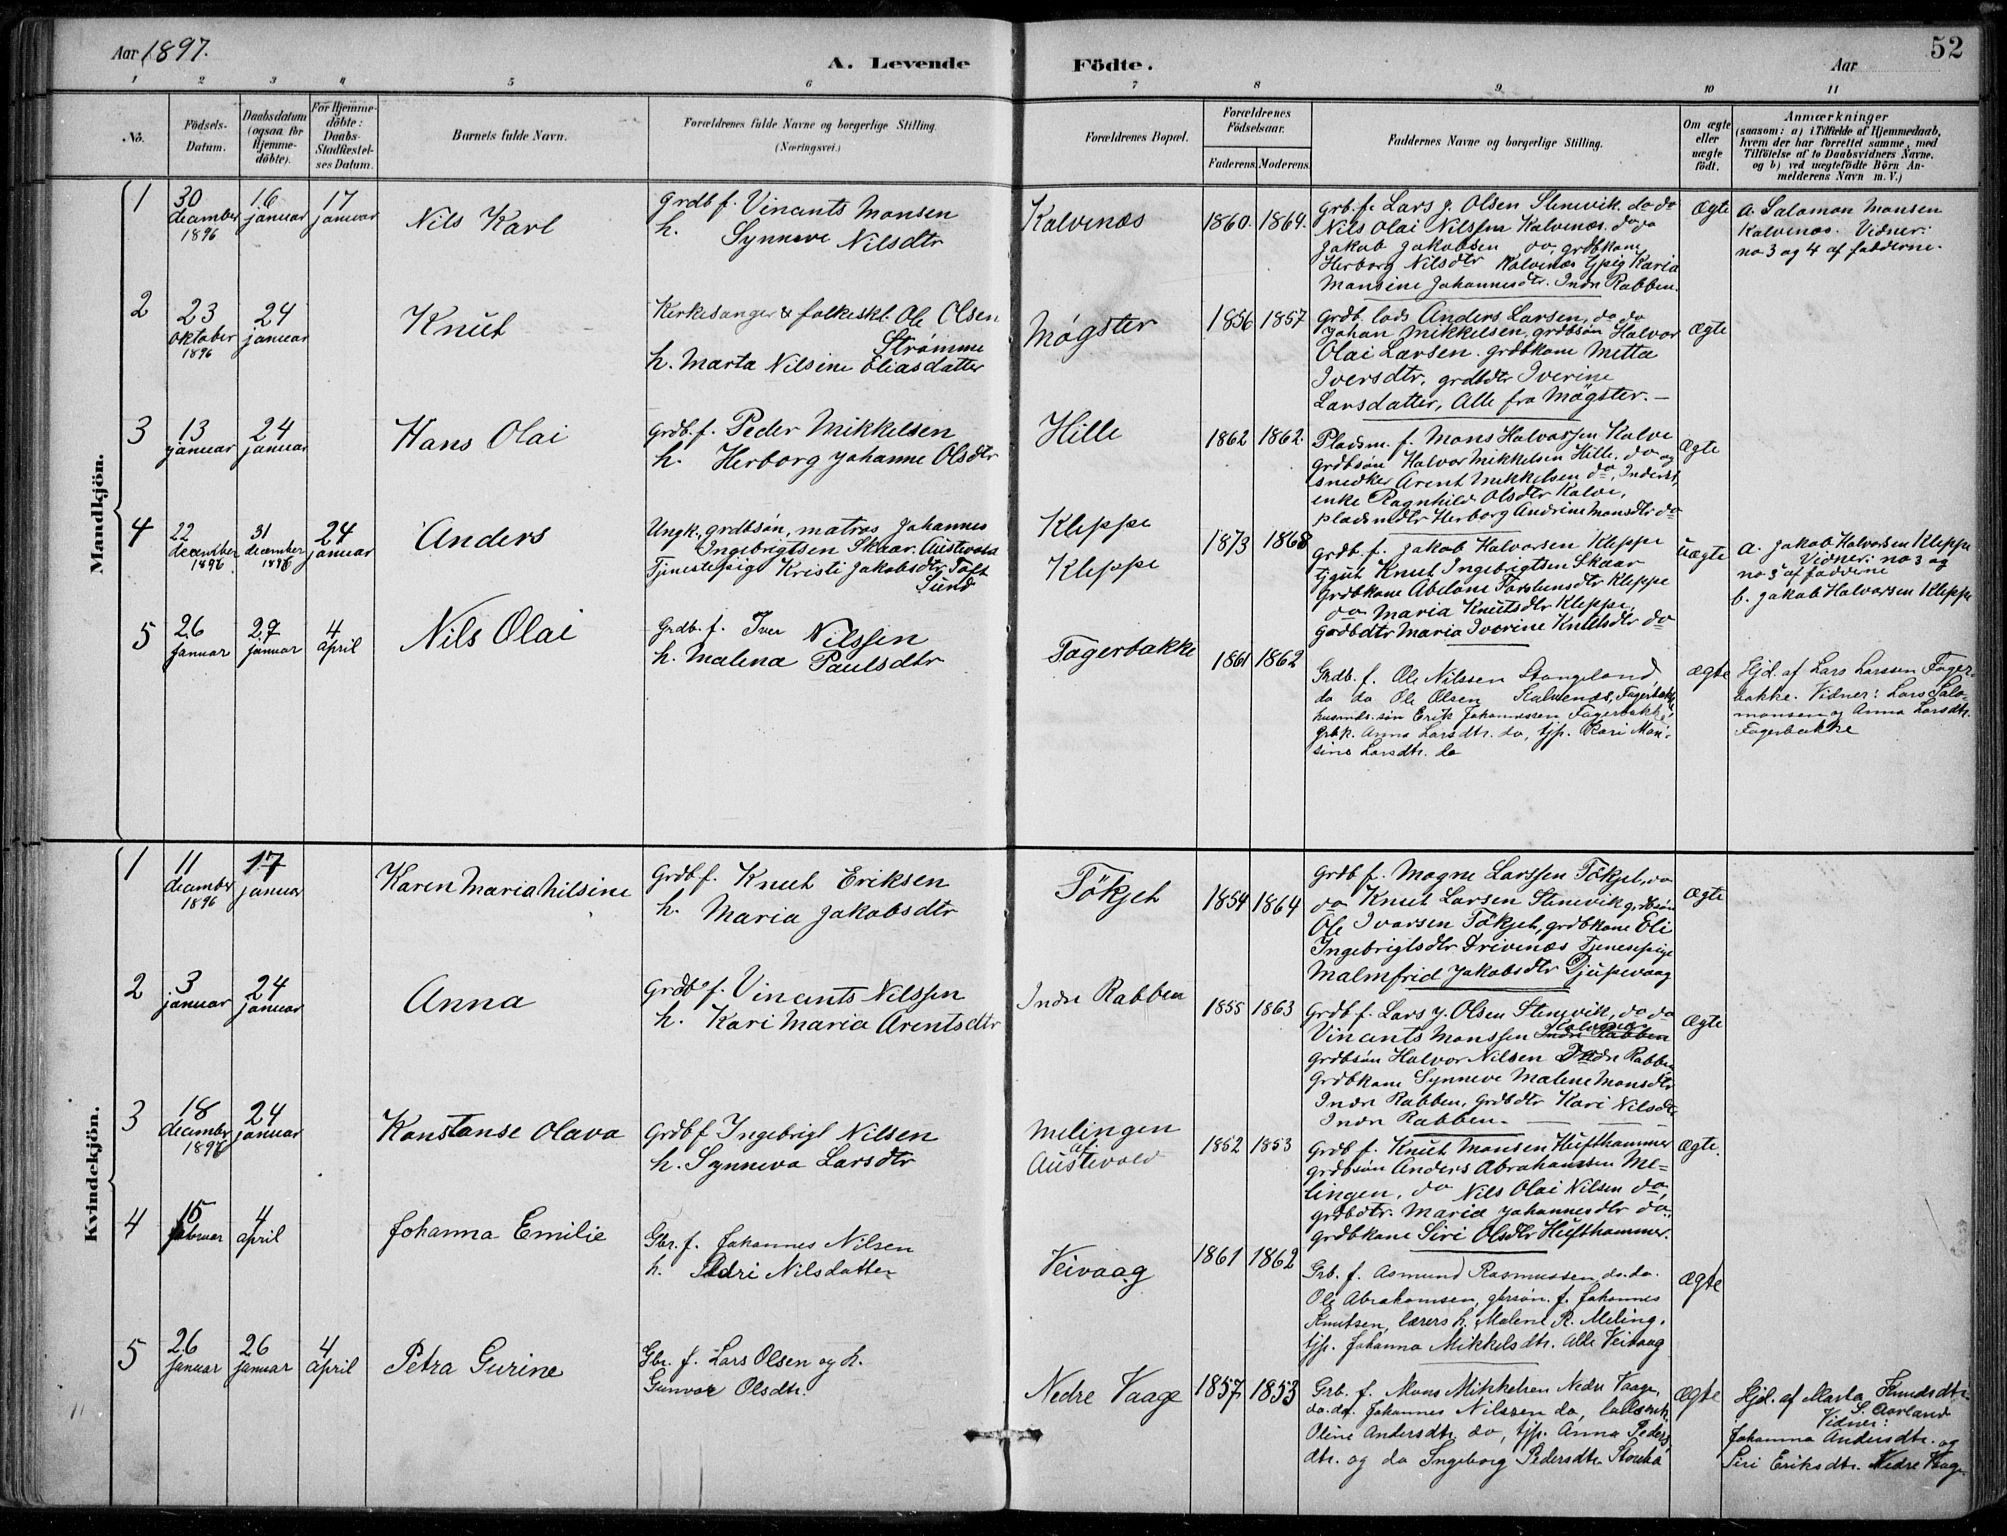 Aar 1897.
A. Levende Födte.
Aar
52
1 2 3 4 5 6 7 8 9 10 11
No.
Födsels-Datum.
Daabsdatum (ogsaa for Hjemme-döbte).
For Hjemme-döbte: Daabs-Stadfæstel-ses Datum.
Barnets fulde Navn.
Forældrenes fulde Navne og borgerlige Stilling. (Næringsvei.)
Forældrenes Bopæl.
Forældrenes Födselsaar.
Faderens. Moderens.
Faddernes Navne og borgerlige Stilling.
Om ægte eller uægte födt.
Anmærkninger
(saasom: a) i Tilfælde af Hjemmedaab, hvem der har forrettet samme, med Tilföielse af to Daabsvidners Navne. og b) ved uægtefödte Börn An-melderens Navn m. V.)
Mandkjön.
1
30 december 1896
16 januar
17 januar
Nils Karl
grdb f. Vincents Monsen
h. Synneve Nilsdtr
Kalvenæs
1860. 1864.
Grb. f. Lars J. Olsen Stenevik. do do
Nils Olai Nilssen Kalvenæs. do do
Jakob Jakobsen do, grdbkone
Herborg Nilsdtr Kalvenæs tpig Karia
Mansine Johannesdtr. Indr Rabben.
Ægte
a. Salamon Monsen
Kalvenæs. Vidner:
no 3 og 4 af fadderne.
2
23 oktober 1896
24 januar
Knut
Kirkesanger & folkeskl. Ole Olsen
Strømme
h. Marta Nilsine Eliasdatter
Møgster
1856 1857
Grdb. lods Anders Larsen, do do
Johan Mikkelsen, grdbsøn Halvor
Olai Larsen. grdbkone Mitta
Iversdtr, grdbdtr Iverine
Larsdatter, Alle fra Møgster. —
Ægte
3
13 januar
24 januar
Hans Olai
Grdb. f. Peder Mikkelsen
h. Herborg Johanne Olsdtr
Hille
1862 1862.
Pladsm. f. Mons Halvorsen Kalve
grdbsøn Halvor Mikkelsen Hille. do og
snedker Arent Mikkelsen do, Inderst
enke Ragnhild Olsdtr Kalve,
pladsmdtr Herborg Andrine Monsdtr do
Ægte
4
22 december 1896
31 december 1896
24 januar
Anders
Ungk. grdbsøn, matros Johannes
Ingebrigtsen Skaar. Austevold
Tjenestepige Kristi Jakobsdtr Toft
Sund
Kleppe
Kleppe
1873 1868
Grdb. f. Jakob Halvorsen Kleppe
tjgut Knut Ingebrigtsen Skaar
Grdbkone Abelone Torstensdtr Kleppe
do Maria Knutsdtr Kleppe,
Gardbdtr Maria Iverine Knutsdtr do
uægte
a. Jakob Halvorsen Kleppe
Vidner: no 3 og
no 5 af fadderne
b. Jakob Halvorsen Kleppe
5
26 januar
27 januar
4 april
Nils Olai
Grdb. f. Iver Nilssen
h. Malena Paulsdtr
Fagerbakke
1861 1862
Grdb. f. Ole Nilssen Stangeland,
do do Ole Olsen Kalvenæs, Fagerbakke,
husmds. søn Erik Johannessen Fagerbakke,
grbk. Anna Larsdtr. do, tjp. Kari Mon-
sine Larsdtr. do
Ægte
Hjd. af Lars Larssen Fager-
bakke. Vidner: Lars Salo-
monsen og Anna Larsdtr.
Fagerbakke
Kvindekjön.
1
11 december 1896
17 januar
Karen Maria Nilsine
Grdb f. Knut Eriksen
h. Maria Jakobsdtr
Tøkjet
1854 1864
Grdb f. Mogne Larssen Tøkjet, do
do Knut Larsen Stenevik grdbsøn
Ole Ivarsen Tøkjet, grdbkone Eli
Ingebrigtsdtr Drivenæs Tjenespige
Malmfrid Jakobsdtr Djupevaag
Ægte
2
3 januar
24 januar
Anna
Grdb f. Vincents Nilssen
h. Kari Maria Arentsdtr
Indre Rabben
1855 1863
Grdb f. Lars J. Olsen Stenevik, do do
Vincents Monssen Kalvenæs Indre Rabben
grdbsøn Halvor Nilsen Indre Rabben
Grdbkone Synneve Malene Monsdtr
Indre Rabben, grdbdtr Kari Nilsdtr
Indre Rabben.
Ægte
3
18 december 1896
24 januar
Konstanse Olava
Grdb f Ingebrigt Nilsen
h. Synneva Larsdtr
Melingen
af
Austevold
1852 1853
Grdb f. Knut Monsen Hufthammer
grdbsøn Anders Abrahamsen Me-
lingen, do Nils Olai Nilsen do,
grdbdtr. Maria Johannesdtr do.
grdbkone Siri Olsdtr Hufthammer.
Ægte.
4
15 februar
4 april
Johanna Emilie
Gbr. f. Johannes Nilsen
h. Nilsdatter
Veivaag
1861 1862
Grb. f. Asmund Rasmussen do. do.
Ole Abrahamsen, gbrsøn. f. Johannes
Knutsen, lærers h. Malene R. Meling,
tjp. Johanna Mikkelsdtr. Alle Veivaag
Ægte
5
26 januar
26 januar
4 april
Petra Gurine
Gbr. f. Lars Olsen og h.
Gunvor Olsdtr.
Nedre Vaage
1857 1853
Grb. f. Mons Mikkelsen Nedre Vaage,
do. do. Johannes Nilssen do,
Oline Andersdtr. do, tjp. Anna Peders
dtr. og do Ingeborg Pedersdtr.
Ægte
Hjd. af Marta Knudsdtr.
S. Aarland
Vidner:
Johanna Andersdtr. og
Siri Eriksdtr. Nedre Vaage